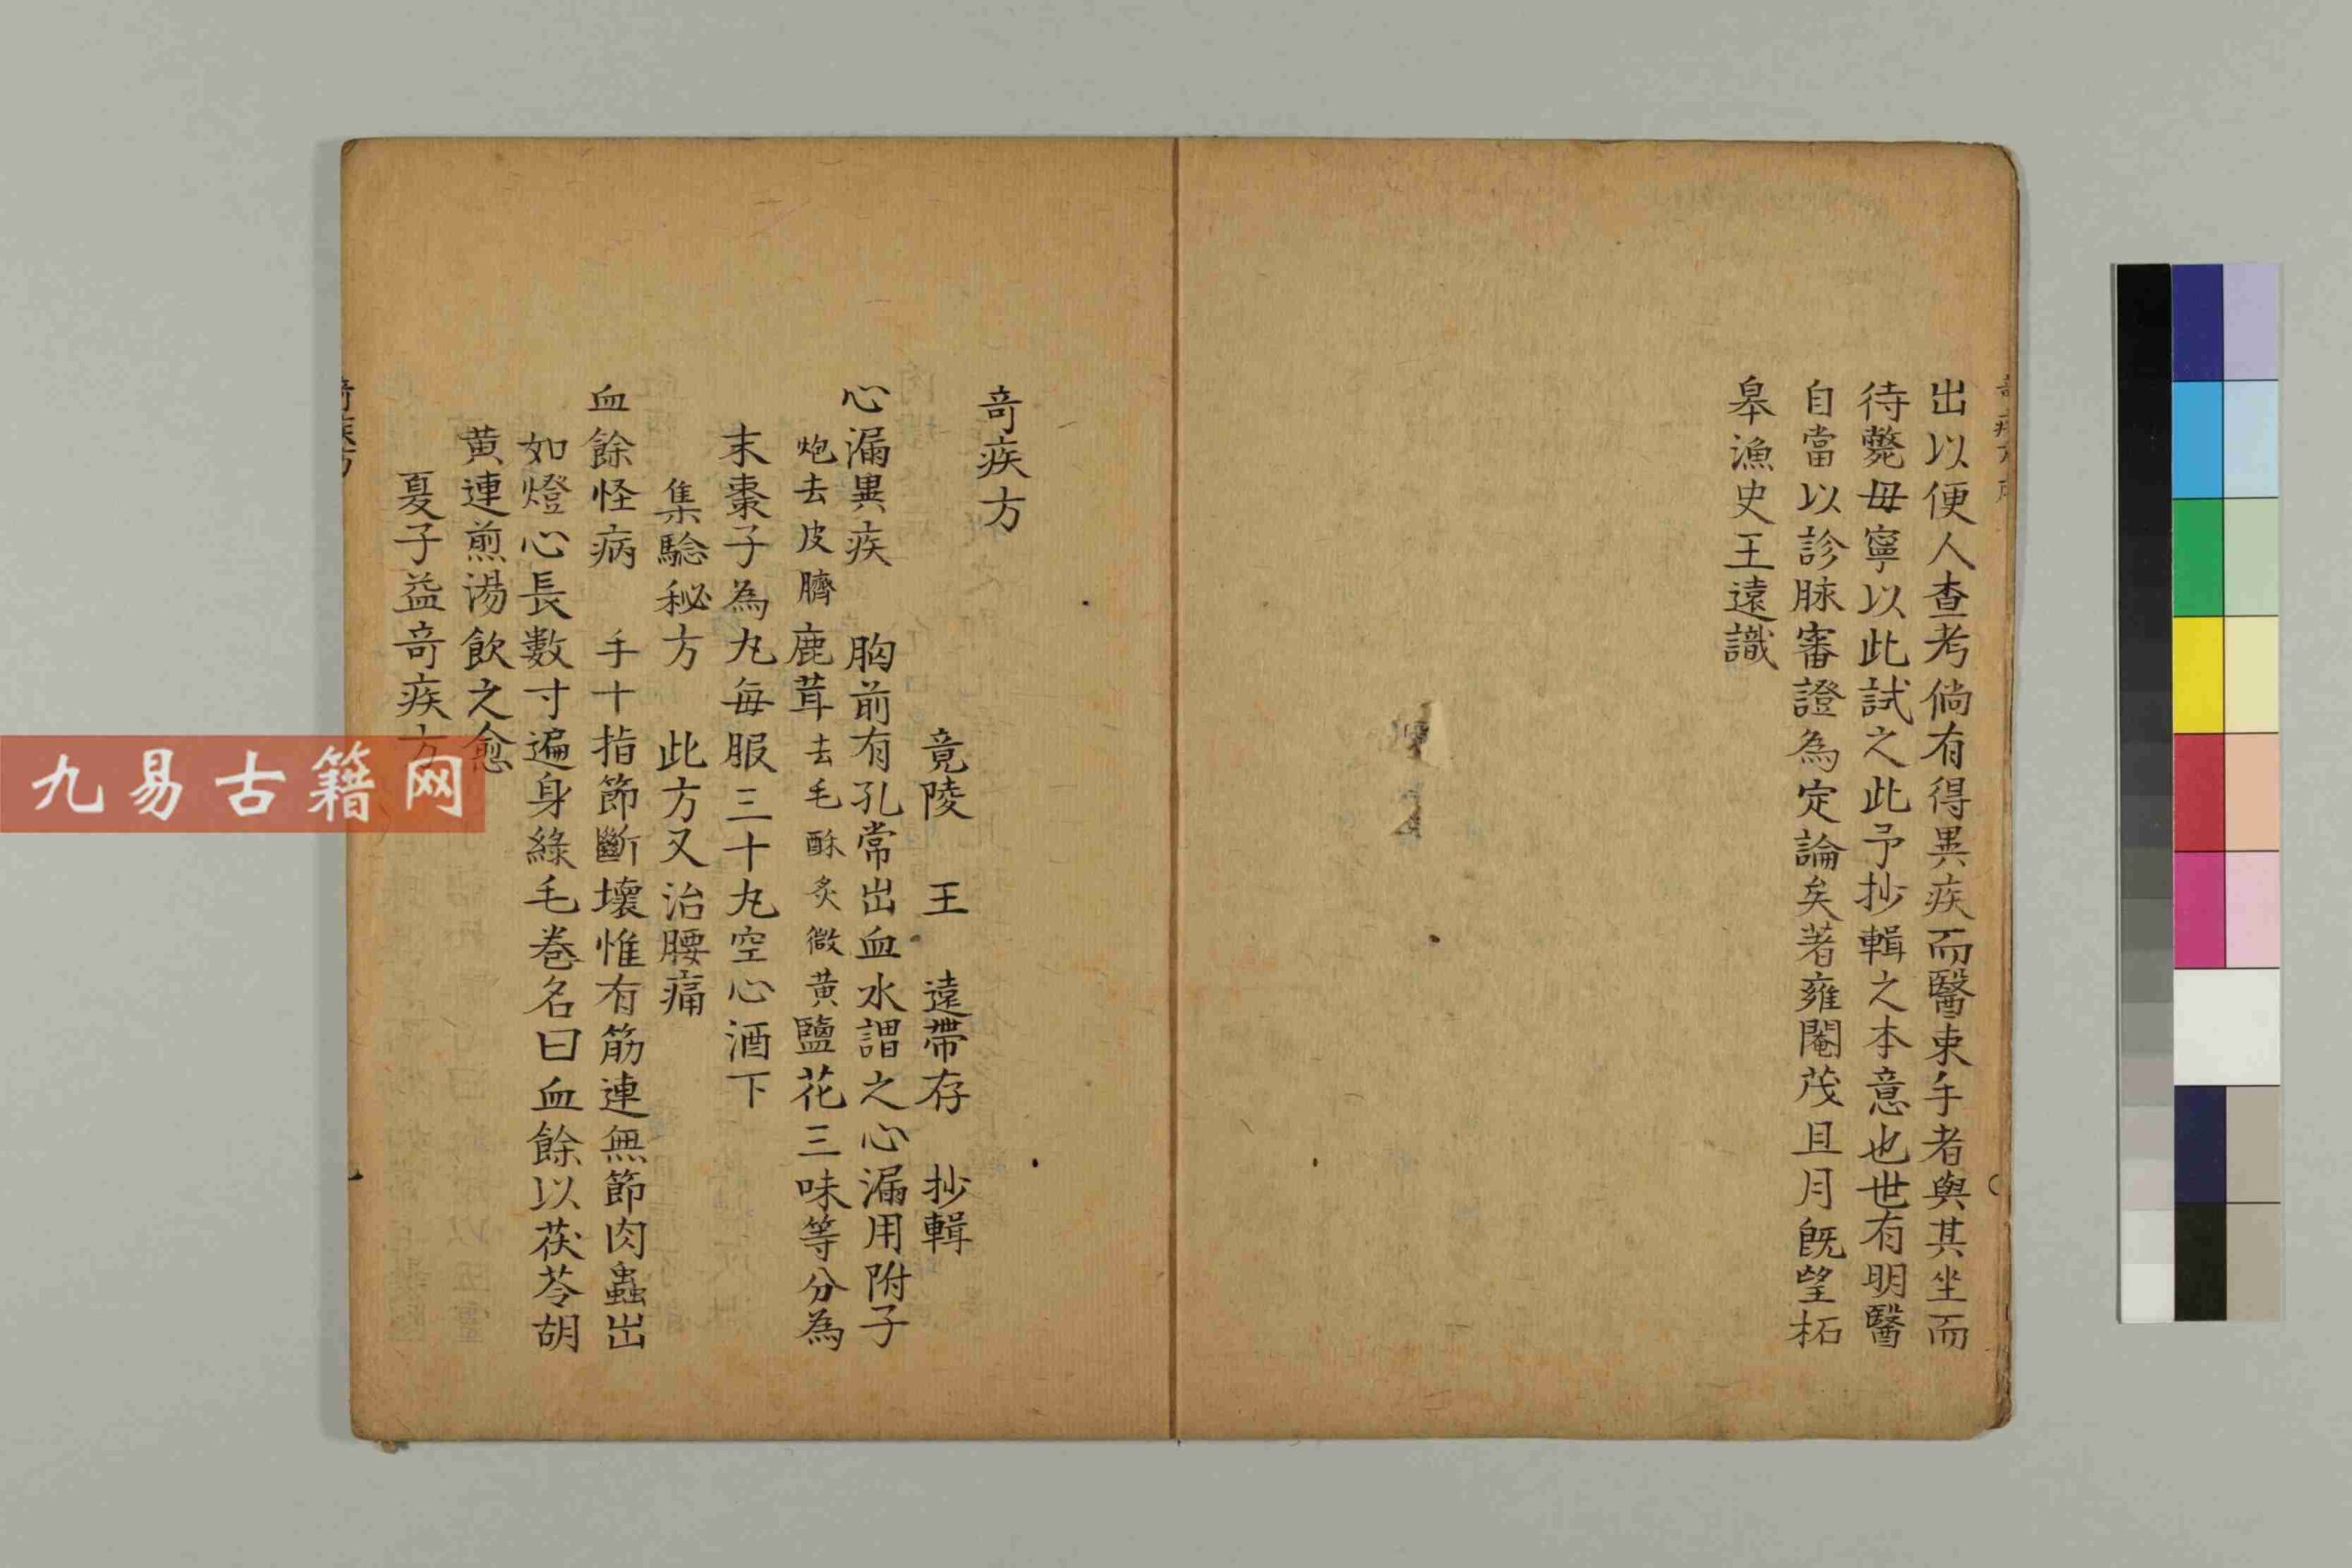 出以便人查考倘有得異疾而醫束手者與其坐而
待斃毋寧以此試之此予抄輯之本意也世有明醫
自當以診脉審證為定論矣著雍閹茂且月既望柘
皋漁史王遠識
奇疾方
竟陵 王 遠帶存 抄輯
心漏異疾 胸前有孔常出血水謂之心漏用附子
炮去皮臍鹿茸去毛酥炙微黄鹽花三味等分為
末棗子為丸每服三十丸空心酒下
集驗秘方 此方又治腰痛
血餘怪病 手十指節斷壞惟有筋連無節肉蟲出
如燈心長數寸遍身綠毛卷名曰血餘以茯苓胡
黄連煎湯飲之愈
夏子益奇疾方
奇疾方
九易古籍网